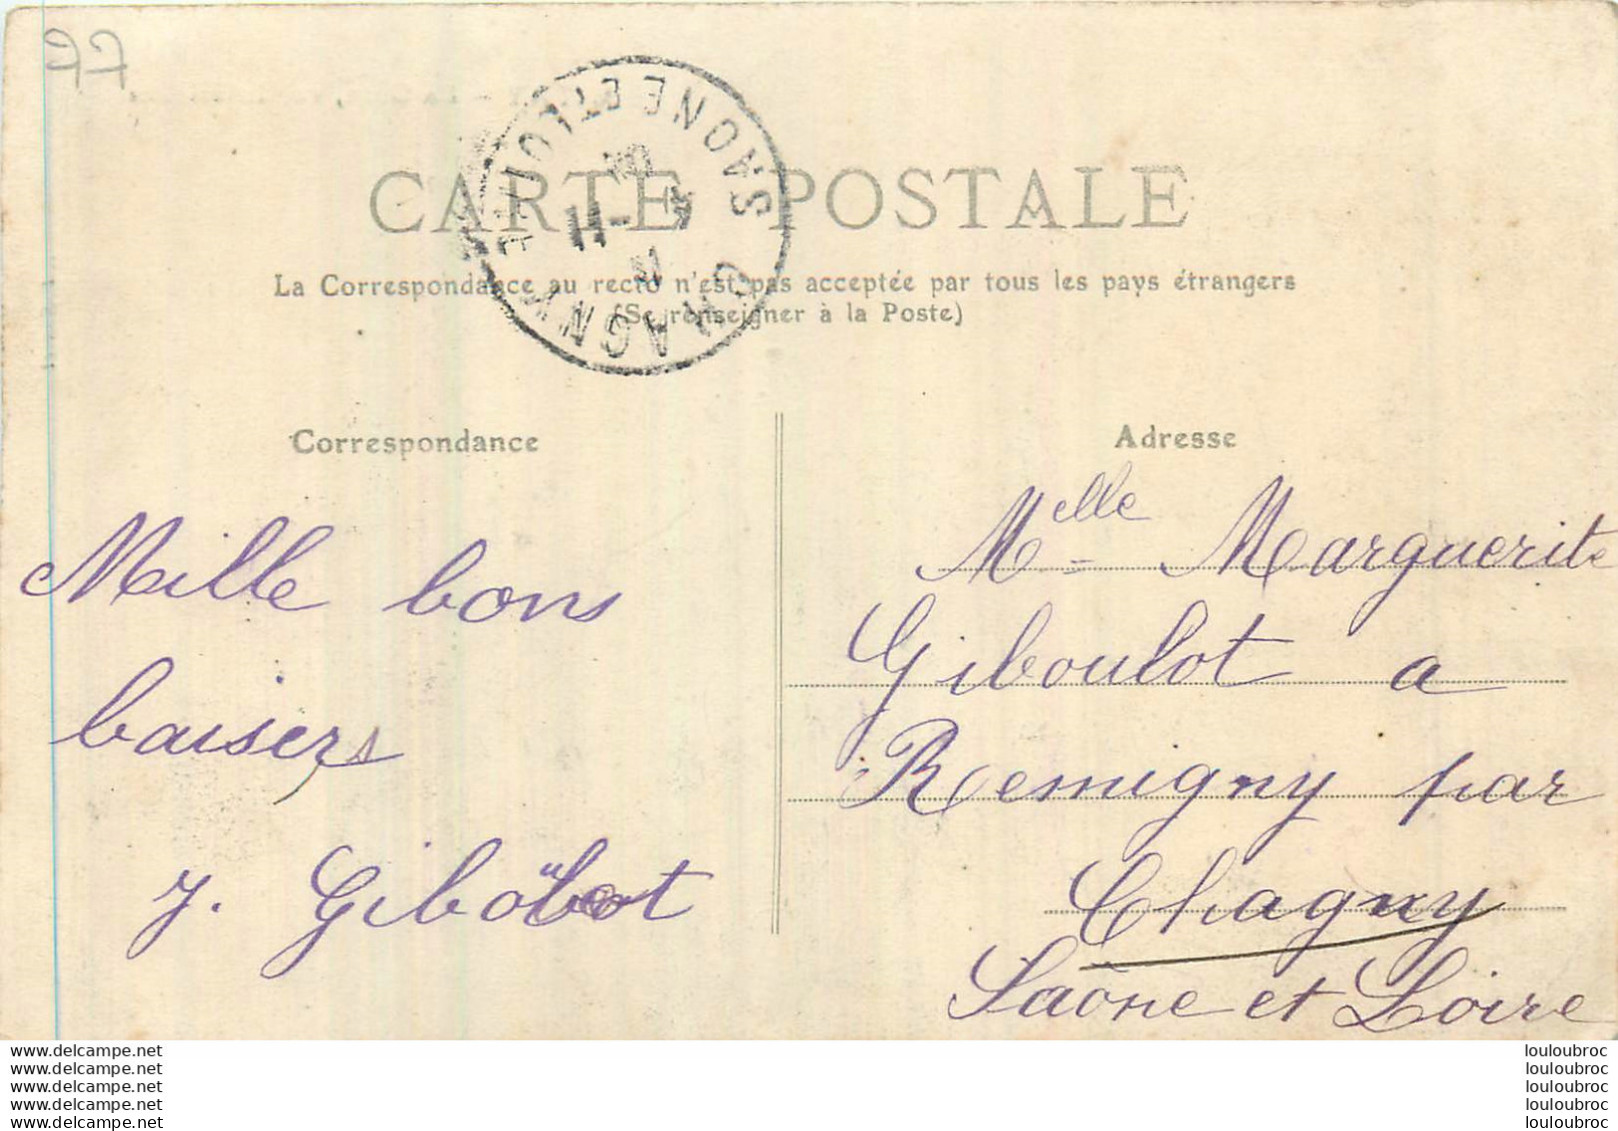 77
SAONE ET LOIRE
CHAGNY
11-4
CARTE POSTALE
La Correspondance au recto n'est pas acceptée par tous les pays étrangers
(Se renseigner à la Poste)
Correspondance
Mille bons
baisers
J. Gibolot
Adresse
Melle Marguerite
Giboulot a
Remigny par
Chagny
Saône et Loire
www.delcampe.net
www.delcampe.net
www.delcampe.net
www.delcampe.net
www.delcampe.net
louloubroc
louloubroc
louloubroc
louloubroc
louloubroc